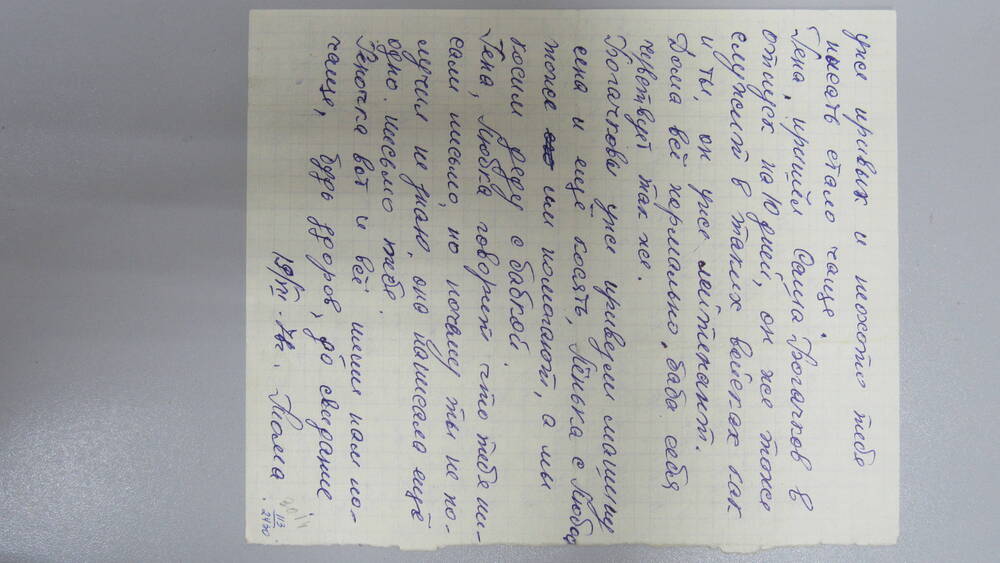 уже привык и неохото тебе
писать стало чаще.
Гена, пришёл Саша Богачков в
отпуск на 10 дней, он же тоже
служит в таких войсках как
и ты, он уже лейтенант.
Дома всё нормально, баба себя
чувствует так же.
Богачковы уже привезли машину
сена и ещё косять, Лёнька с Любой
тоже им помогают, а мы
косим деду с бабкой.
Гена, Любка говорит что тебе пи-
сали письмо, но почему ты не по-
лучил не знаю, она написала ещё
одно письмо тебе.
Геночка вот и всё пиши нам по-
чаще, будь здоров, до свидание
19/VII-78г.
113
2430